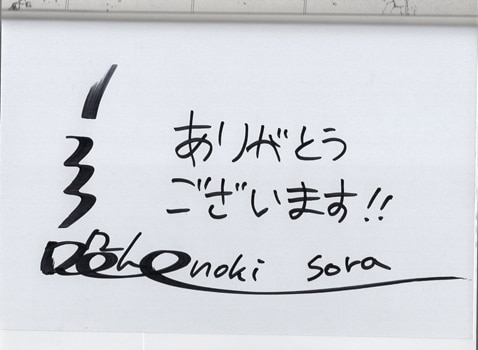 ありがとう
ございます!!
enoki sora